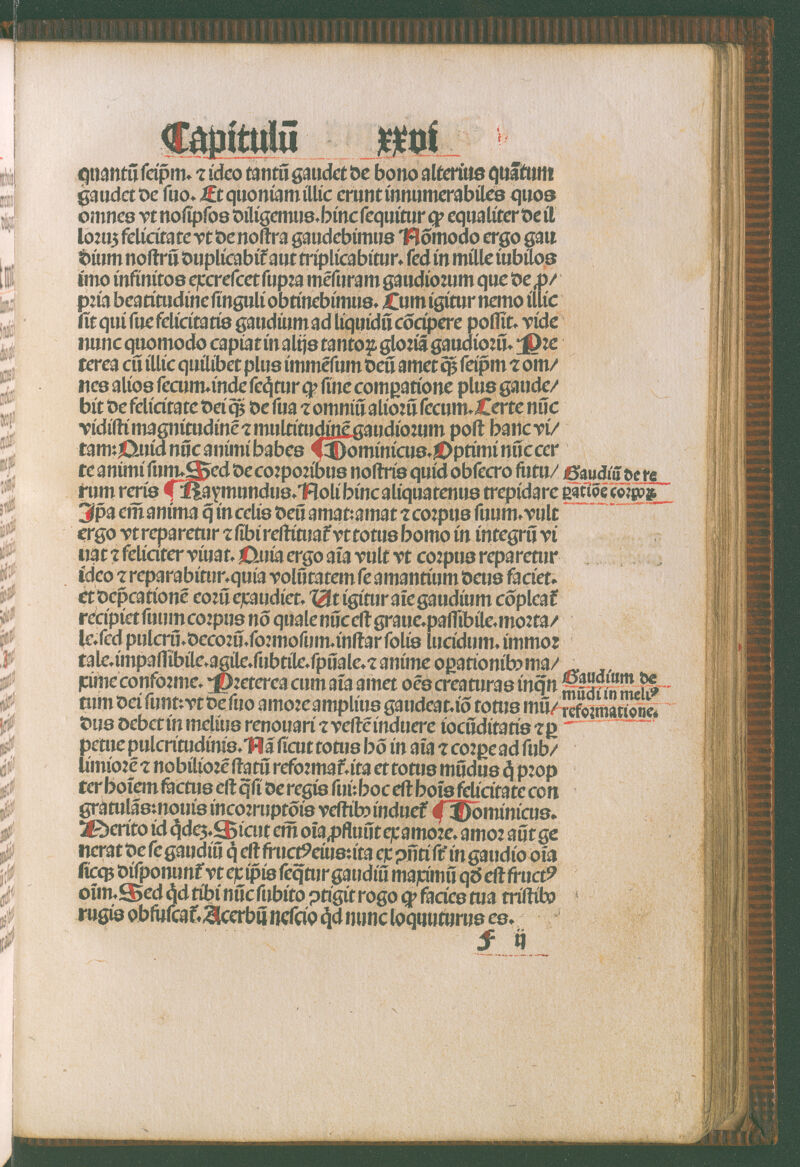 Capitulū xxvi
quantū ſeip̄m. ⁊ ideo tantū gaudet de bono alterius quātum
gaudet de ſuo. Et quoniam illic erunt innumerabiles quos
omnes vt noſipſos diligemus. hinc ſequitur ꝙ equaliter de il
loꝛuꝫ felicitate vt de noſtra gaudebimus Nōmodo ergo gau
dium noſtrū duplicabit̄ aut triplicabitur. ſed in mille iubilos
imo infinitos excreſcet ſupꝛa mēſuram gaudioꝛum que de ꝓ/
pꝛia beatitudine ſinguli obtinebimus. Cum igitur nemo illic
ſit qui ſue felicitatis gaudium ad liquidū cōcipere poſſit. vide
nunc quomodo capiat in alijs tantoꝝ gloꝛiā gaudioꝛū. Pꝛe
terea cū illic quilibet plus immēſum deū amet ꝙ̄ꝫ ſeip̄m ⁊ om/
nes alios ſecum. inde ſeq̇tur ꝙ ſine comꝑatione plus gaude/
bit de felicitate dei ꝙ̄ꝫ de ſua ⁊ omniū alioꝛū ſecum. Certe nūc
vidiſti magnitudinē ⁊ multitudinē gaudioꝛum poſt hanc vi/
tam: Quid nūc animi habes ¶ Dominicus. Optimi nūc cer
te animi ſum. Sed de coꝛpoꝛibus noſtris quid obſecro futu/
rum reris ¶ Raymundus. Noli hinc aliquatenus trepidare
Ip̄a em̄ anima q̄ in celis deū amat: amat ⁊ coꝛpus ſuum. vult
ergo vt reparetur ⁊ ſibi reſtituat̄ vt totus homo in integrū vi
uat ⁊ feliciter viuat. Quia ergo aīa vult vt coꝛpus reparetur
ideo ⁊ reparabitur. quia volūtatem ſe amantium deus faciet.
et dep̄cationē eoꝛū exaudiet. Ut igitur aīe gaudium cōpleat̄
recipiet ſuum coꝛpus nō quale nūc eſt graue. paſſibile. moꝛta/
le. ſed pulcrū. decoꝛū. foꝛmoſum. inſtar ſolis lucidum. immoꝛ
tale. impaſſibile. agile. ſubtile. ſpūale. ⁊ anime oꝑationibꝰ ma/
xime confoꝛme. Pꝛeterea cum aīa amet oēs creaturas inq̄n
tum dei ſunt: vt de ſuo amoꝛe amplius gaudeat. iō totus mū/
dus debet in melius renouari ⁊ veſtē induere iocūditatis ⁊ ꝑ
petue pulcritudinis. Nā ſicut totus hō in aīa ⁊ coꝛꝑe ad ſub/
limioꝛē ⁊ nobilioꝛē ſtatū refoꝛmat̄. ita et totus mūdus q̇ pꝛop
ter hoīem factus eſt q̄ſi de regis ſui: hoc eſt hoīs felicitate con
gratulās: nouis incoꝛruptōis veſtibꝰ induet̄ ¶ Dominicus.
Merito id q̇deꝫ. Sicut em̄ oīa ꝓfluūt ex amoꝛe. amoꝛ aūt ge
nerat de ſe gaudiū q̇ eſt fructꝰ eius: ita ex ꝯn̄ti ſt̄ in gaudio oīa
ſicqꝫ diſponunt̄ vt ex ip̄is ſeq̄tur gaudiū maximū qd̄ eſt fructꝰ
oīm. Sed q̇d tibi nūc ſubito ꝯtigit rogo ꝙ facies tua triſtibꝰ
rugis obfuſcat̄. Acerbū neſcio q̇d nunc loquuturus es.
f ij
Gaudiū de re
ꝑatiōe coꝛpoꝝ
Gaudium de
mūdi in meliꝰ
refoꝛmatione.